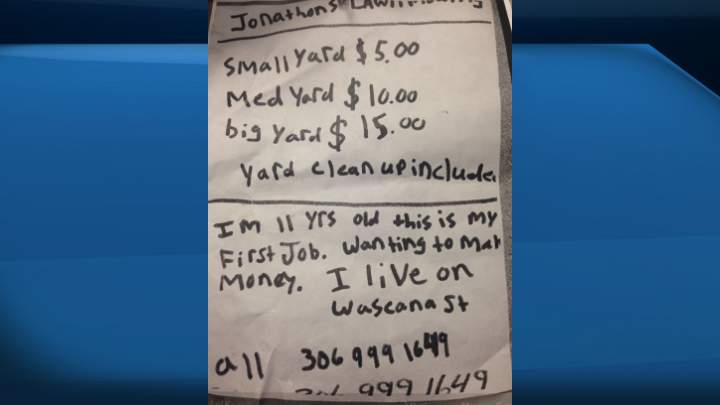 Jonathons
Small Yard $5.00
Med Yard $10.00
big Yard $15.00
Yard clean up include
Im 11 yrs old this is my
First Job. Wanting to mak
Money. I live on
Wascana St
all 306 999 1649
999 1649